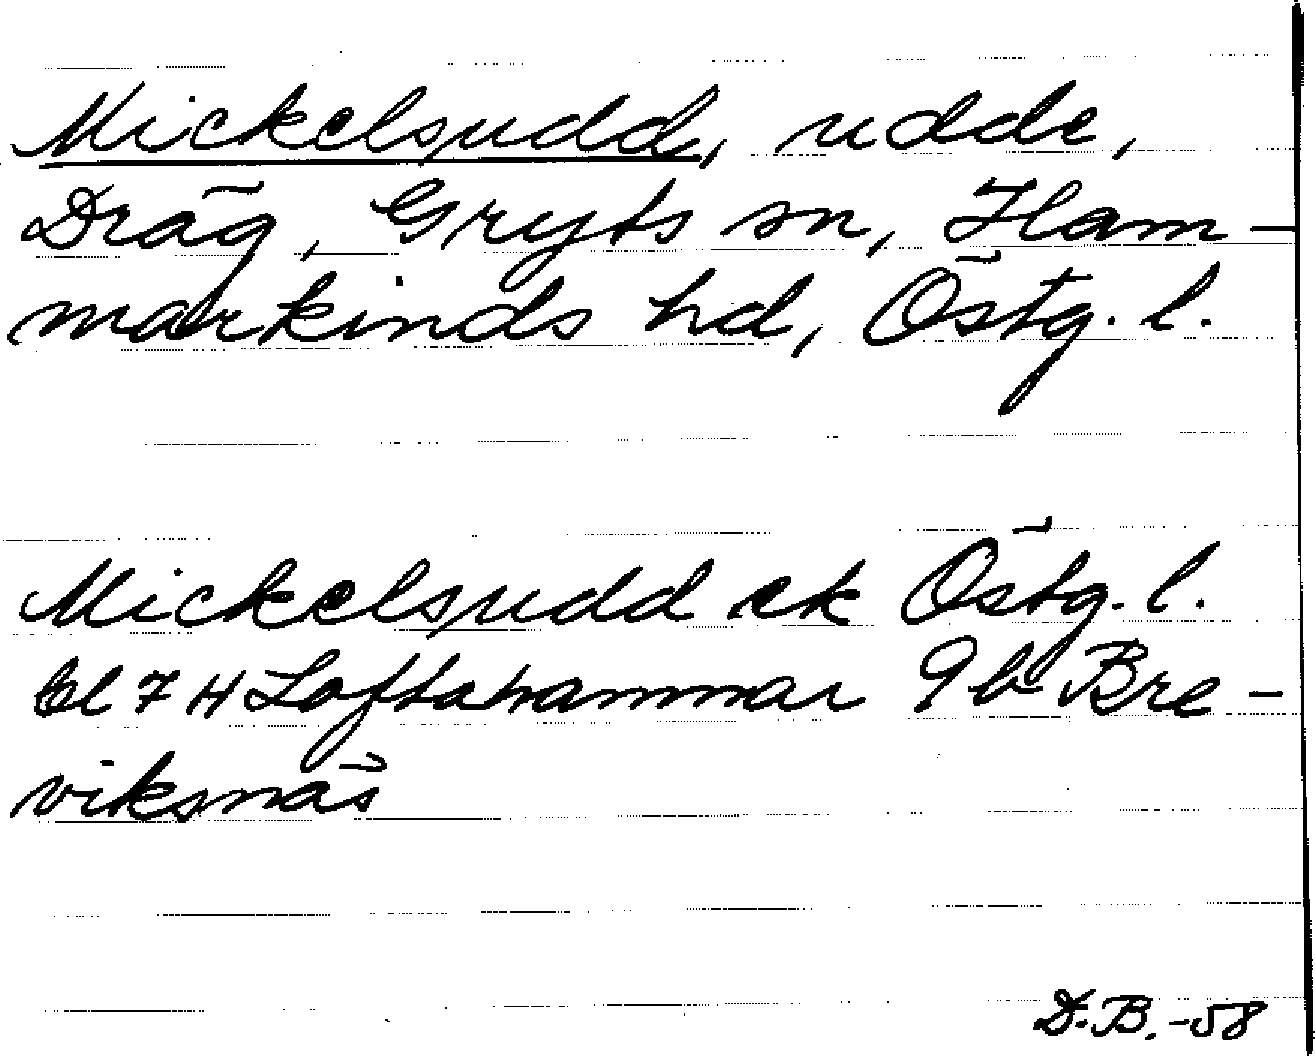 Mickelsudd, udde,
Dräg, Gryts sn, Ham-
markinds hd, Östg. l.
Mickelsudd ek Östg. l.
bl 7 H Loftahammar 9 b Bre-
viksnäs
D.B. -58